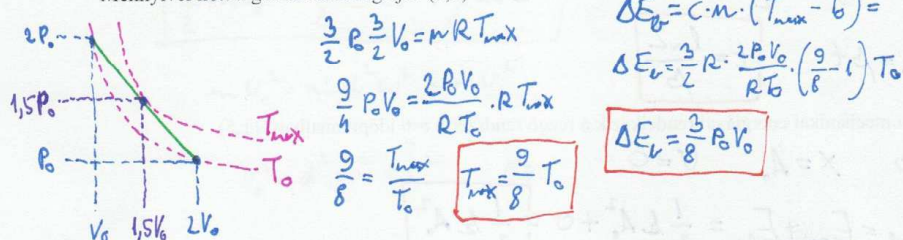 2P₀
1,5P₀
P₀
V₀ 1,5V₀ 2V₀
T_max
T₀
3/2 P₀ 3/2 V₀ = n R T_max
9/4 P₀V₀ = 2P₀V₀/RT₀ · R T_max
9/8 = T_max/T₀
T_max = 9/8 T₀
ΔE_b = C·n·(T_max - t₀) =
ΔE_b = 3/2 R · 2P₀V₀/RT₀ · (9/8 - 1) T₀
ΔE_b = 3/8 P₀V₀